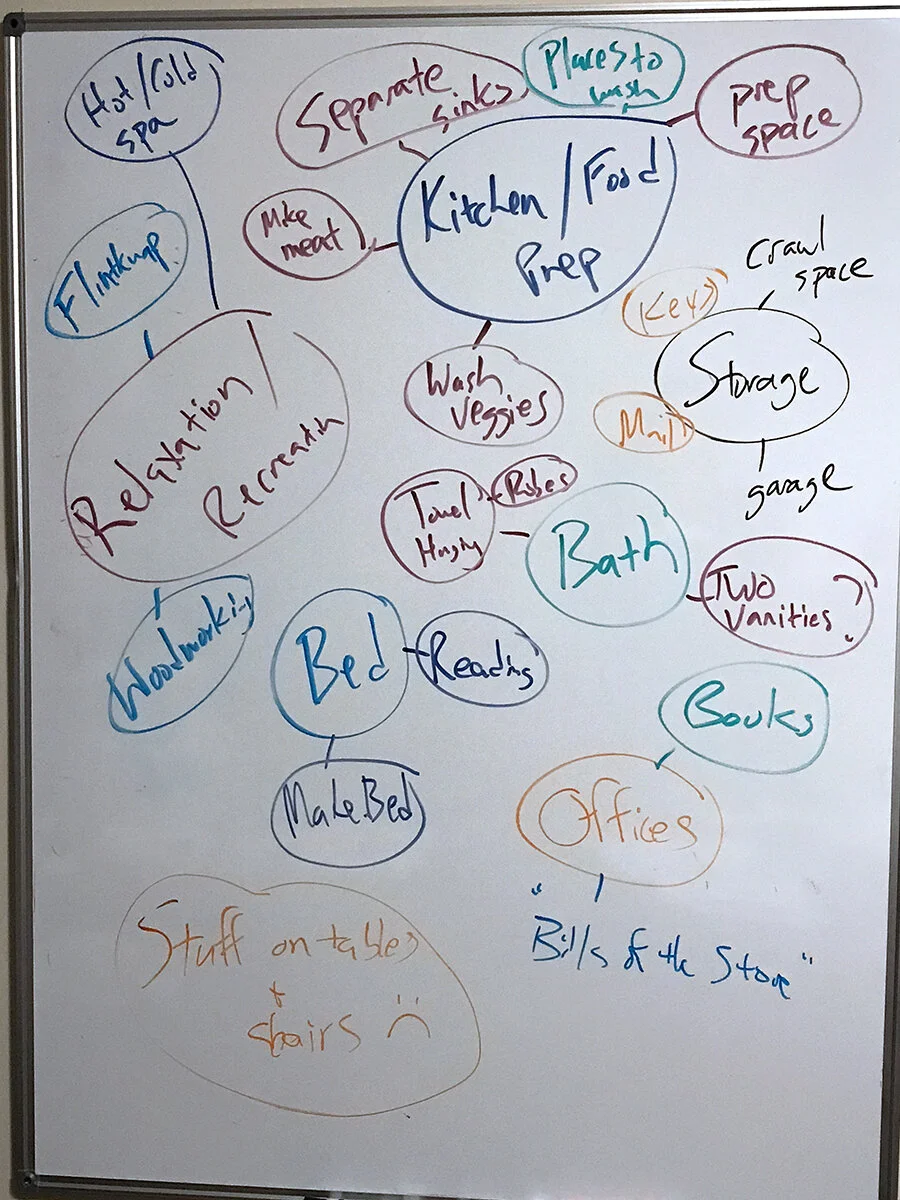 Hot/Cold
spa
Separate
sinks
Places to
wash
prep
space
Kitchen / Food
Prep
Mike
meat
Flintknap
crawl
space
Keys
Storage
Mail
garage
Wash
veggies
Relaxation /
Recreatin
Towel
Hanging
Robes
Bath
Two
Vanities
Woodworking
Bed
Reading
Make Bed
Books
Offices
"Bills of the Store"
Stuff on tables
+
chairs :(